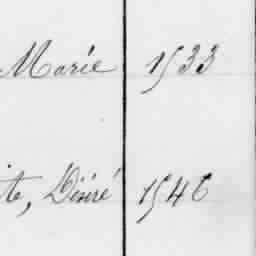 Marie 1533
te, Désiré 1546